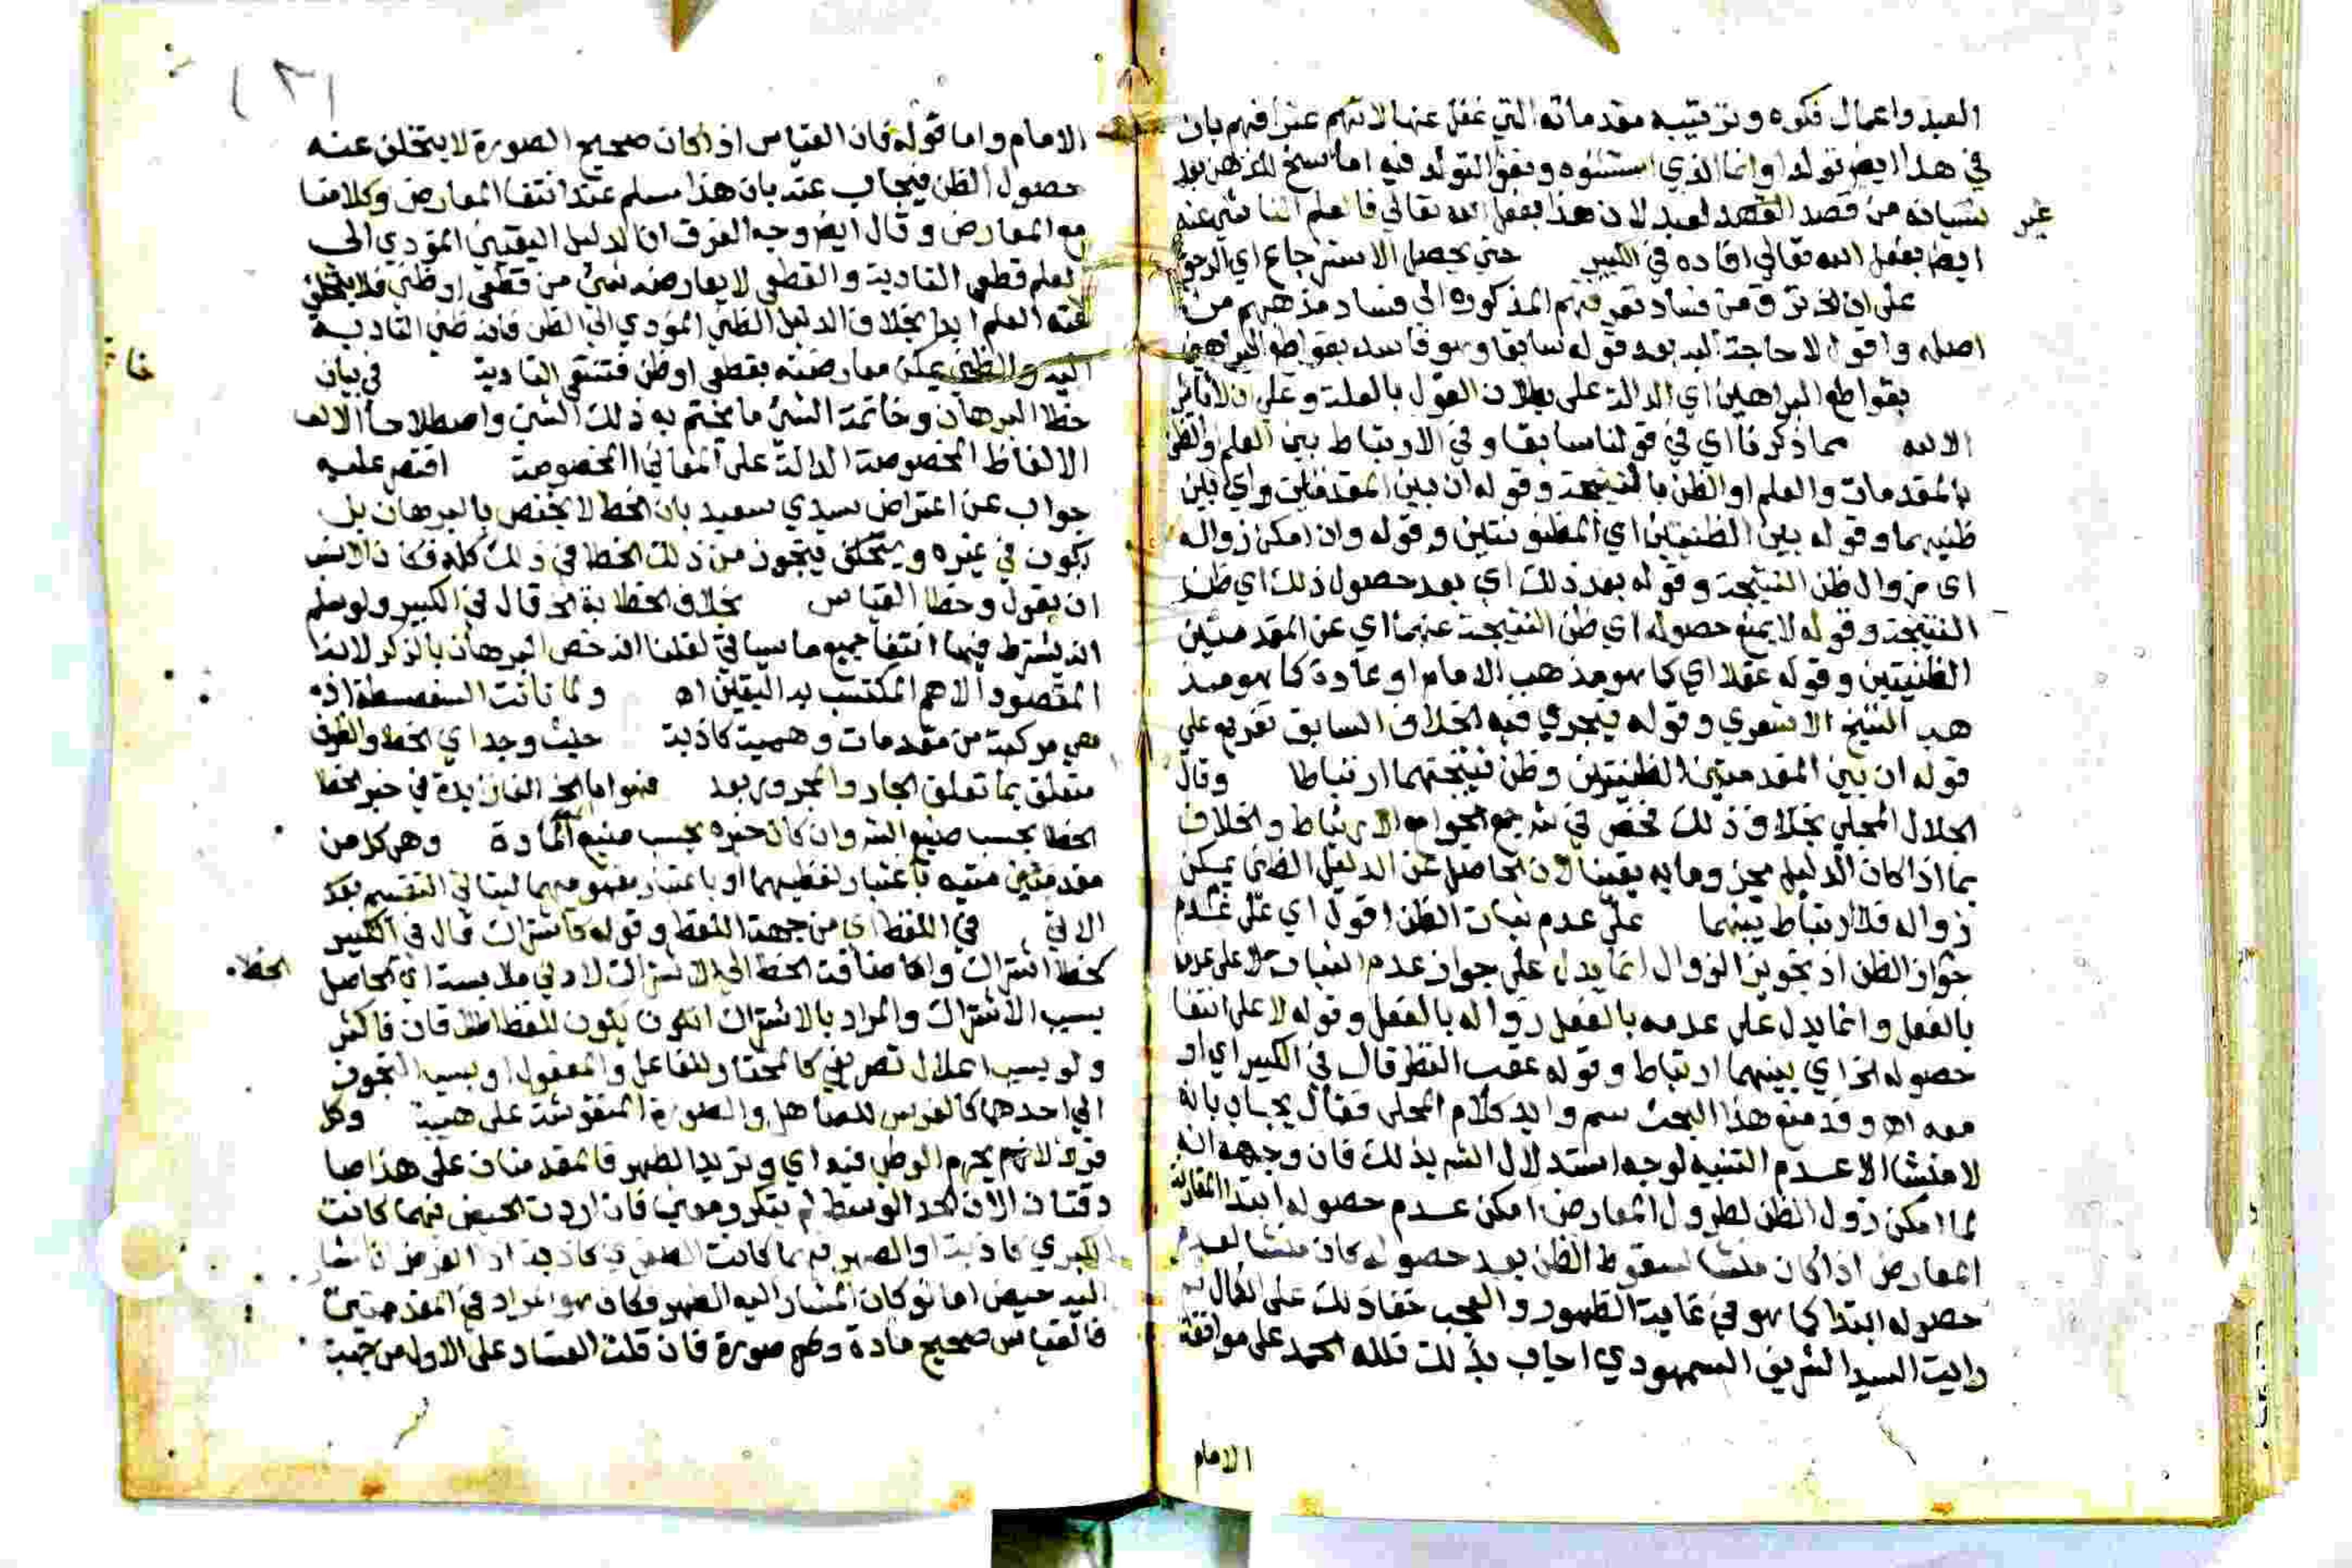 العبد واعمال فكره وترتيبه مقدماته التي غفل عنها لانهم عترافهم بان
في هذا ايض تولدا وانما الذي استثنوه ونفوا التولد فيه اما سنح للذهن بعد
نسيانه من قصد العبد لان هذا بفعل الله تعالي فالعلم الناشئ عنه
غير
ايض بفعل الله تعالي افاده في الكبير حتي يحصل الاسترجاع اي الرجوع
علي ان لا فساد تعريفهم المذكورة الي فساد مذهبهم من
اصله واقول لا حاجة اليه بعد قوله سابقا وهو فاسد بقواطع البراهين
بقواطع البراهين اي الدالة علي بطلان القول بالعلة وعلي ان لا تاثير
الا لله مما ذكرنا اي في قولنا سابقا وفي الارتباط بين العلم والظن
بالمقدمات والعلم او الظن بالنتيجة وقوله ان بين المقدمتين واي بين
ظنيهما وقوله بين الظنيتين اي المظنونتين وقوله وان امكن زواله
اي زوال ظن النتيجة وقوله بعد ذلك اي بعد حصول ذلك اي ظن
النتيجة وقوله لا يمنع حصوله اي ظن النتيجة عنهما اي عن المقدمتين
الظنيتين وقوله عقلا اي كما هو مذهب الامام او عادة كما هو مذ
هب الشيخ الاشعري وقوله فيجري فيه الخلاف السابق تفريع علي
قوله ان بين المقدمتين الظنيتين وظن نتيجتهما ارتباطا وقال
الجلال المحلي بخلاف ذلك فخص في شرح جمع الجوامع الارتباط والخلاف
بما اذا كان الدليل مجزوما به يقينا لان الحاصل عن الدليل الظني يمكن
زواله فلا ارتباط بينهما علي عدم ثبات الظن اقول اي علي عدم
جواز الظن اذ تجويز الزوال انما يدل علي جواز عدم الثبات لا علي عدمه
بالفعل وانما يدل علي عدمه بالفعل زواله بالفعل وقوله لا علي انتفا
حصوله الخ اي بينهما ارتباط وقوله عقب النظر قال في الكبير اي او
معه اه وقد منع هذا البحث سم وايد كلام المحلي فقال يجاب بانه
لا منشا الا عدم التنبيه لوجه استدلال الشر بذلك فان وجهه انه
لما امكن زول الظن لطرو المعارض امكن عدم حصوله ابتدا لمقارنة
المعارض اذا كان منشا لسقوط الظن بعد حصوله كان منشا لعدم
حصوله ابتدا كما هو في غاية الظهور والعجب خفا ذلك علي الكمال ثم
رايت السيد الشريف السمهودي اجاب بذلك فلله الحمد علي موافقة
الامام
(٣١
الامام واما قوله فان القياس اذا كان صحيح الصورة لا يتخلف عنه
حصول الظن فيجاب عنه بان هذا مسلم عند انتفا المعارض وكلامنا
مع المعارض وقال ايض وجه الفرق ان الدليل اليقيني المؤدي الي
العلم قطعي التادية والقطعي لا يعارضه شئ من قطعي او ظني فلا يتخلف
عنه العلم ابدا بخلاف الدليل الظني المؤدي الي الظن فانه ظني التادية
اليه والظني يمكن معارضته بقطعي او ظن فتنتفي التادية في بيان
خاتمة
خطا البرهان وخاتمة الشئ ما يختم به ذلك الشئ واصطلاحا الالف
الالفاظ المخصوصة الدالة علي المعاني المخصوصة اقتصر عليه
جواب عن اعتراض سيدي سعيد بان الخطا لا يختص بالبرهان بل
يكون في غيره ويتمكن فيتجوز من ذلك الخطا في ذلك كله فكان الانسب
ان يقول وخطا القياس بخلاف الخطابة الخ قال في الكبير ولو سلم
انه يشترط فيهما انتفا جميع ما سياتي لقلنا انه خص البرهان بالذكر لانه
المقصود الاهم المكتسب به اليقين اه ولما نافت السفسطة اذ
هي مركبة من مقدمات وهمية كاذبة حيث وجد اي الخطا والظرف
متعلق بما تعلق الجار والمجرور بعد فهو اما الخ الفا زيدة في خبر الخطا
الخطا بحسب صنيع الشر وان كان خبره بحسب صنيع المادة وهو كل من
مقدمتين منتيه باعتبار لفظيهما او باعتبار مفهومهما ليتاتي التقسيم بعد
الاتي في اللفظ اي من جهة اللفظ وقوله كاشتراك قال في الكبير
كخطا اشتراك واضافت الخطا الي الاشتراك لادني ملابسة اي الحاصل
الخطا
بسبب الاشتراك والمراد بالاشتراك ان يكون للفظ معنيان فاكثر
ولو بسبب اعلال تصريفي كالمختار للفاعل والمفعول او بسبب التجوز
الي احدهما كالفرس للصاهل والصورة المنقوشة علي هيئته وكل
قرء لانهم يحرم الوطي فيه اي وتريد الطهر فالمقدمتان علي هذا صا
دقتان الا ان الحد الوسط لم يتكرر معني فان اردت الحيض فيهما كانت
الكبري كاذبة او الطهر فيهما كانت الصغري كاذبة اذ الفرض ان المشار
اليه حيض اما لو كان المشار اليه الطهر وكان هو المراد في المقدمتين
فالقياس صحيح مادة وصورة فان قلت الفساد علي الاول من جهة